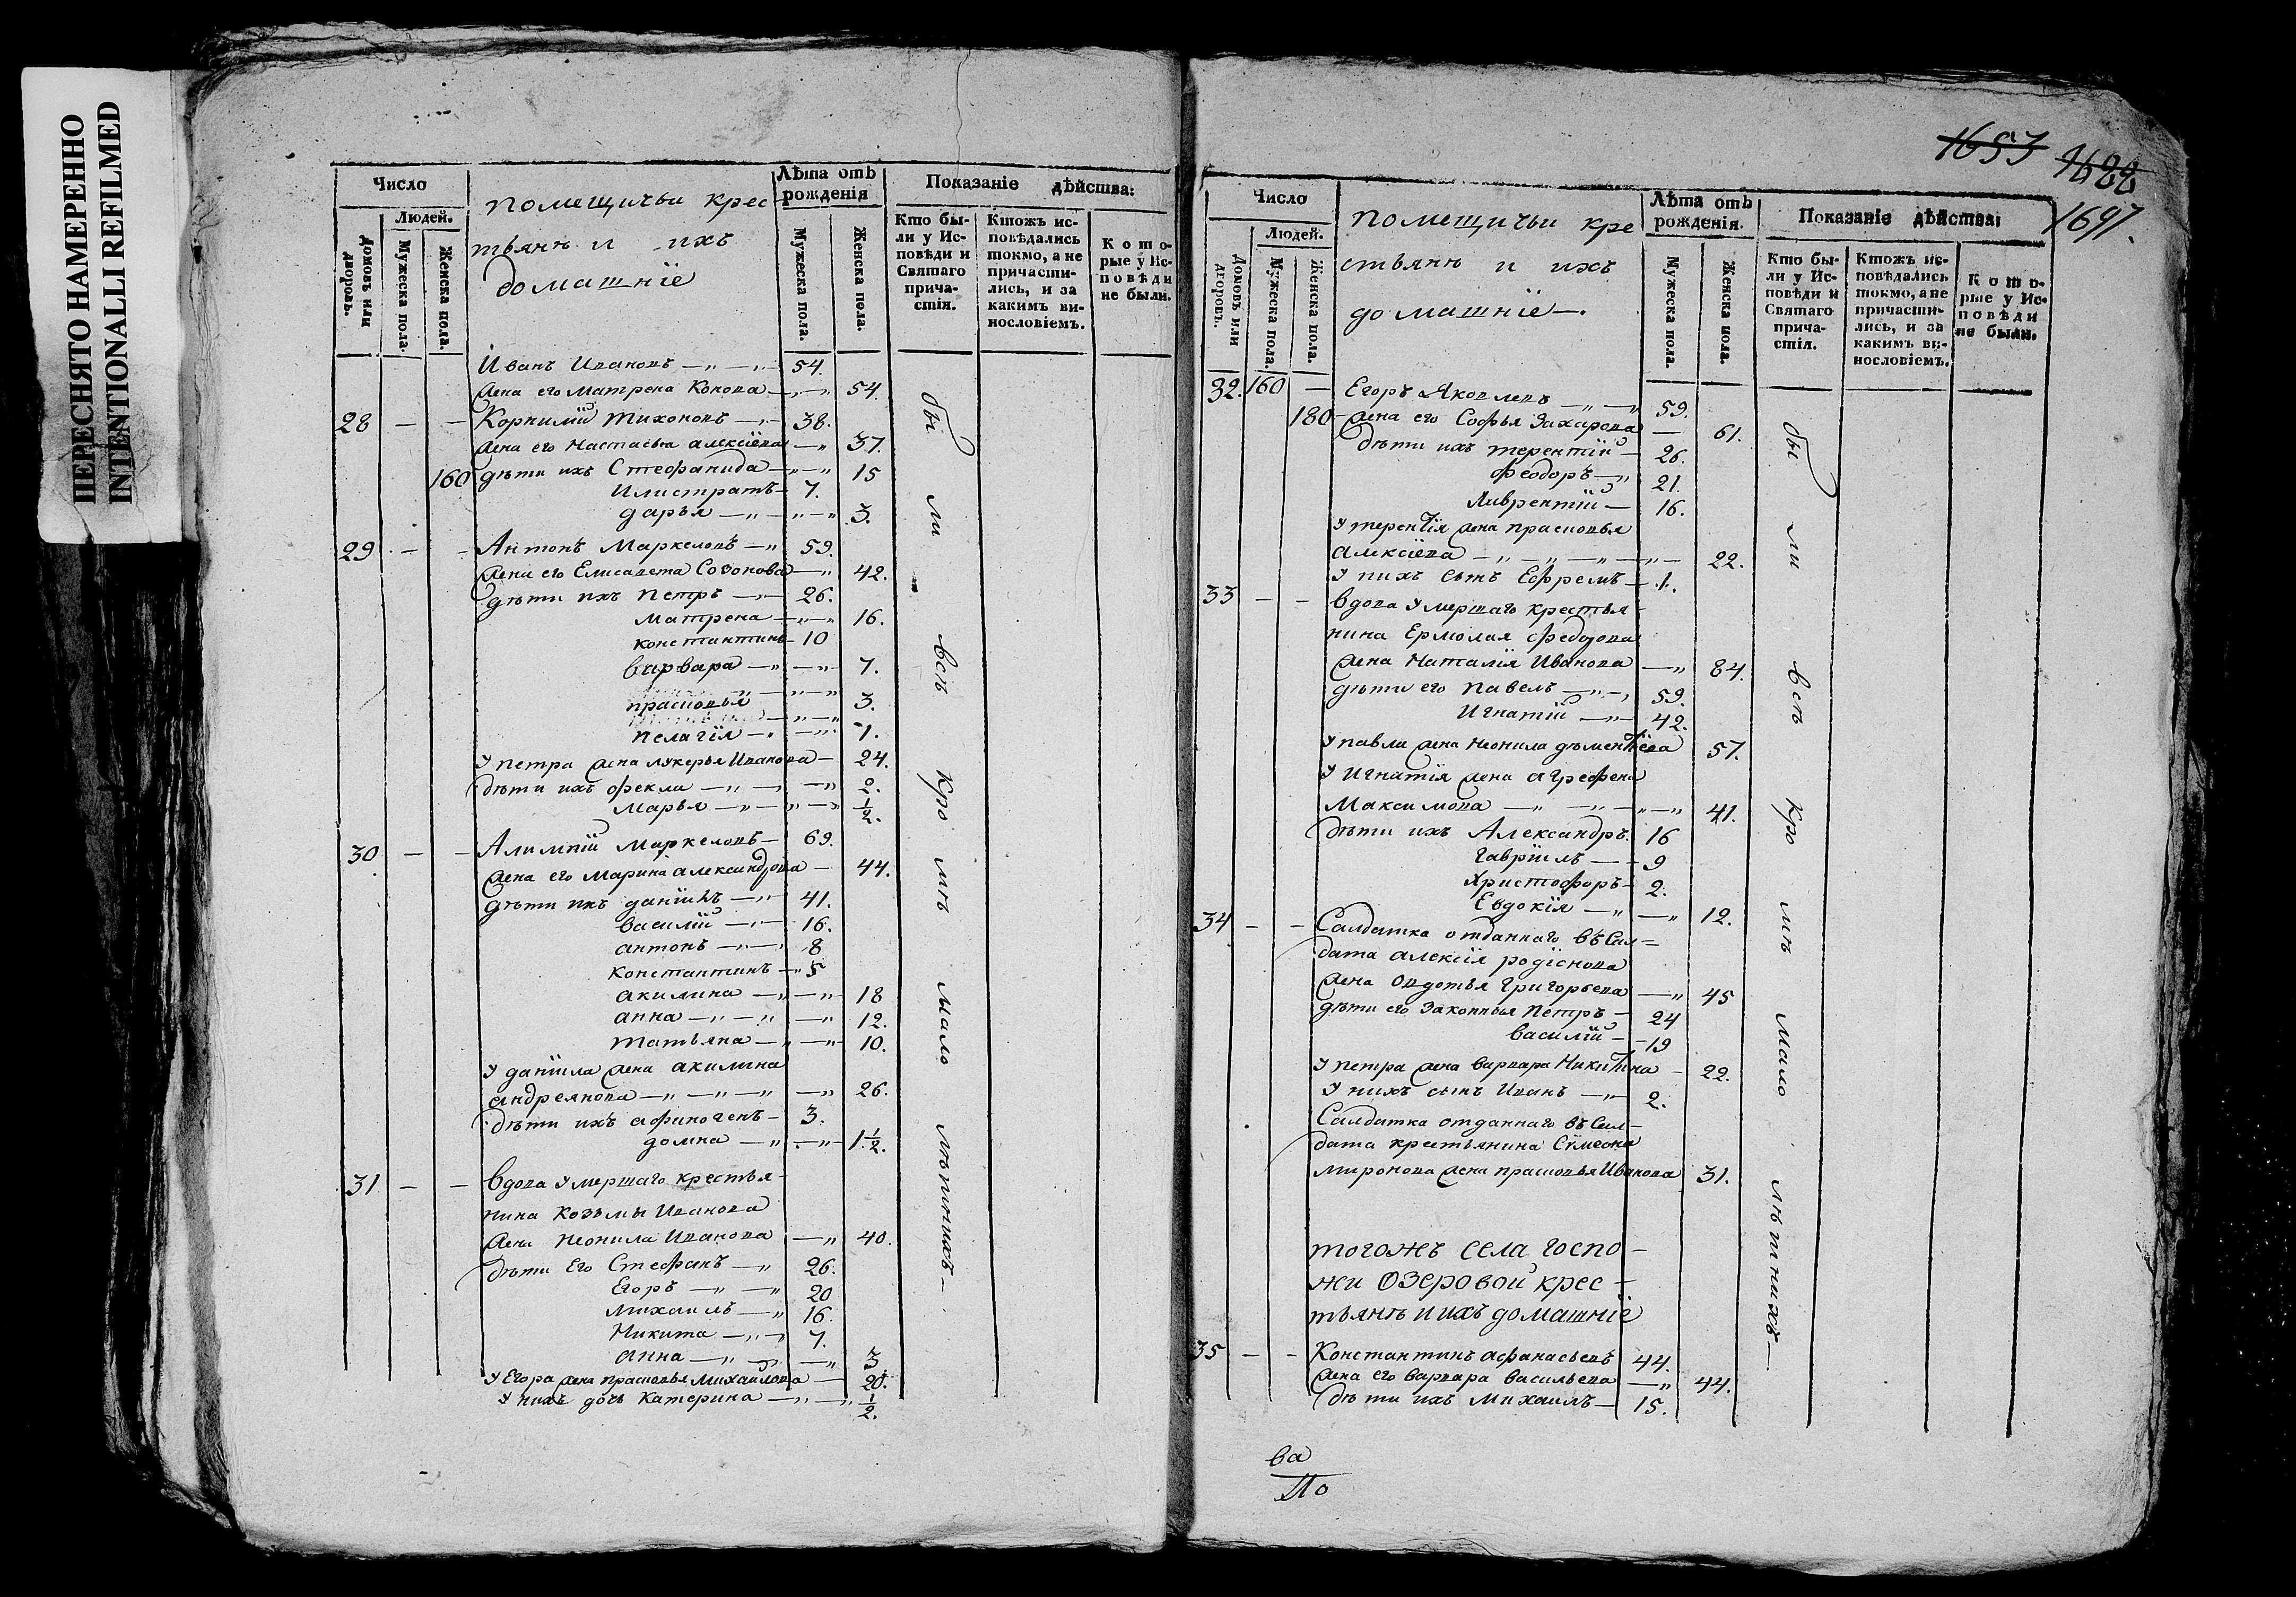 ПЕРЕСНЯТО НАМЕРЕННО
INTENTIONALLI REFILMED
Число
Людей.
Домовъ или дворовъ.
Мужеска пола.
Женска пола.
помещичьи крес-
тьянъ и ихъ
домашнїе
Лѣта отъ рожденія
Мужеска пола.
Женска пола.
Показаніе дѣйства:
Кто бы-
ли у Ис-
повѣди и
Святаго
прича-
стія.
Ктожъ ис-
повѣдались
токмо, а не
причасти-
лись, и за
какимъ ви-
нословіемъ.
Кото-
рые у Ис-
повѣди
не были.
Иванъ Ивановъ 54.
жена его Матрена Конова 54.
28 — — Корнилїй Тихоновъ 38.
жена его Настасья алексїева 37.
160 дѣти ихъ Стефанида 15
Илистратъ 7.
дарья 3.
29 — — Антонъ Маркеловъ 59.
жена его Елисавета Созонова 42.
дѣти ихъ Петръ 26.
Матрена 16.
константинъ 10
Варвара 7.
прасковья 3.
пелагїя 1.
у петра жена лукерья Иванова 24.
дѣти ихъ фекла 2.
Марья 1/2.
30 — — Алимпїй Маркеловъ 69.
жена его Марина александрова 44.
дѣти ихъ данїилъ 41.
василїй 16.
антонъ 8
константинъ 5
акилина 18
анна 12.
татьяна 10.
у данїила жена акилина
андреянова 26.
дѣти ихъ афиногенъ 3.
домна 1 1/2.
31 — — вдова умершаго крестья-
нина Козьмы Иванова
жена Неонила Иванова 40.
дѣти Его Стефанъ 26.
Егоръ 20
Михаилъ 16.
Никита 7.
анна 3
у Егора жена прасковья Михайлова 20.
у нихъ дочь Катерина 1/2.
были всѣ кромѣ малолѣтнихъ
1653 1688
1697.
Число
Людей.
Домовъ или дворовъ.
Мужеска пола.
Женска пола.
помещичьи кре
стьянъ и ихъ
домашнїе
Лѣта отъ рожденія.
Мужеска пола.
Женска пола.
Показаніе дѣйства:
Кто бы-
ли у Ис-
повѣди и
Святаго
прича-
стія.
Ктожъ ис-
повѣдались
токмо, а не
причасти-
лись, и за
какимъ ви-
нословіемъ.
Кото-
рые у Ис-
повѣди
не были.
32. 160 — Егоръ Яковлевъ 59.
180 жена его Софья Захарова 61.
дѣти ихъ терентїй 26.
Феодоръ 21.
Лаврентїй 16.
у терентїя жена прасковья
алексїева 22.
у нихъ сынъ Ефремъ 1.
33 — — вдова умершаго крестья-
нина Ермолая федорова
жена Наталїя Иванова 84.
дѣти его павелъ 59.
Игнатїй 42.
у павла жена Неонила дементїева 57.
у Игнатїя жена агрефена
Максимова 41.
дѣти ихъ Александръ 16
гаврїилъ 9
христофоръ 2.
Евдокїя 12.
34 — — Салдатка отданнаго въ Сал-
дата алексїя родїонова
жена овдотья григорьева 45
дѣти его законныя Петръ 24
василїй 19
у петра жена варвара Никитина 22.
у нихъ сынъ Иванъ 2.
Салдатка отданнаго въ Сал-
дата крестьянина Сѵмеона
миронова жена прасковья Иванова 31.
тогожъ села госпо-
жи Озеровой крес-
тьянъ и ихъ домашнїе
35 — — Константинъ афанасьевъ 44.
жена его варвара васильева 44.
дѣти ихъ Михаилъ 15.
были всѣ кромѣ малолѣтнихъ
ва
По